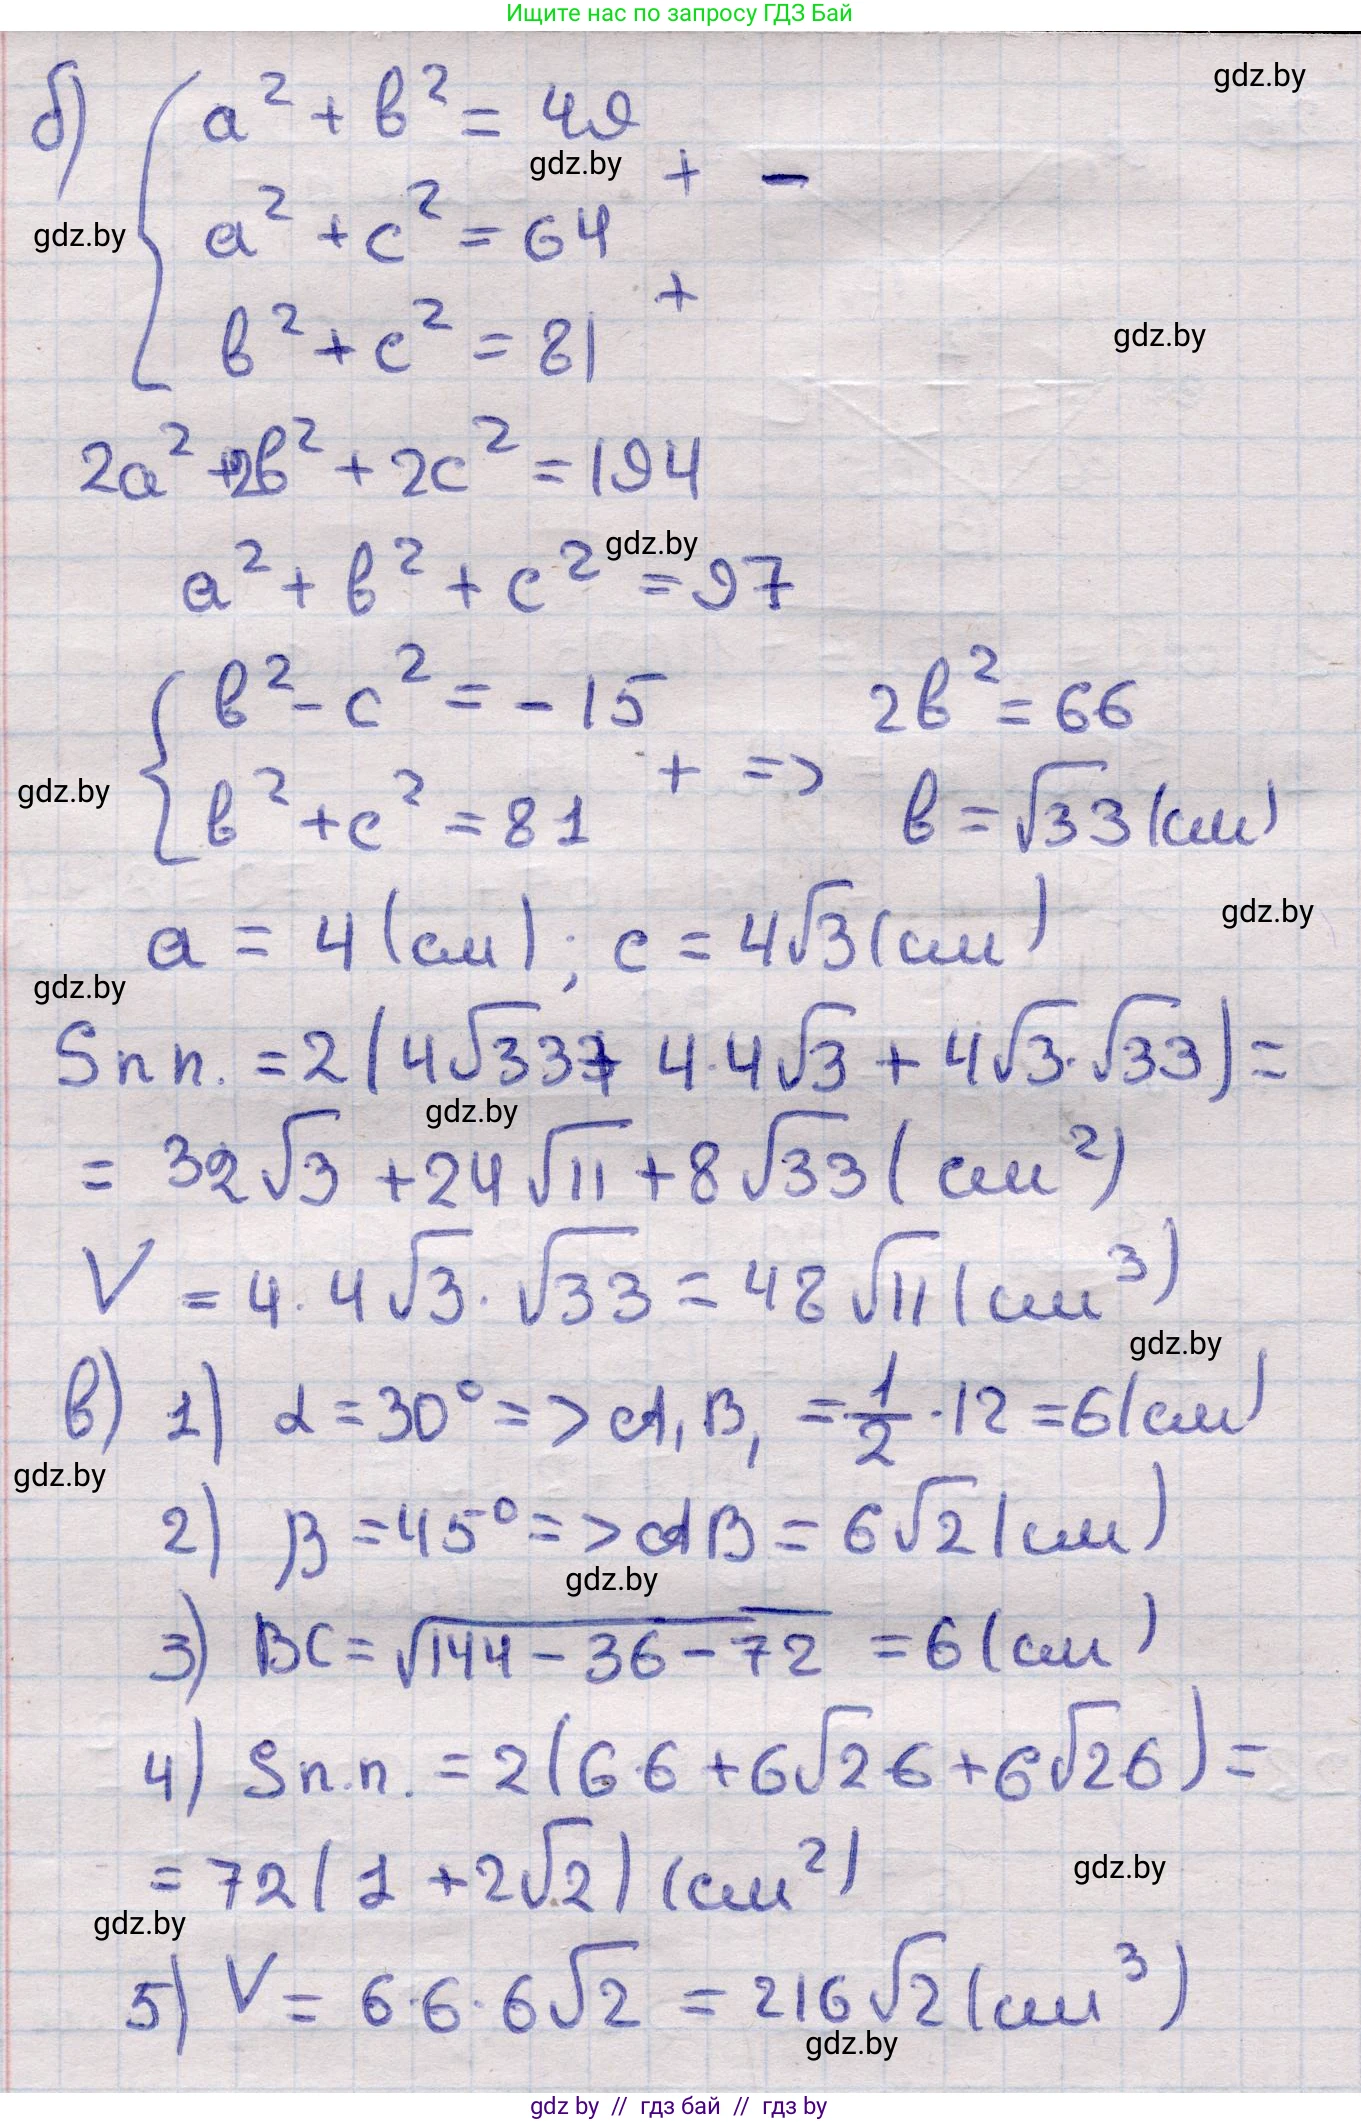 Ищите нас по запросу ГДЗ Бай
gdz.by
б) a² + b² = 49
gdz.by
+ −
gdz.by
a² + c² = 64
+
b² + c² = 81
gdz.by
2a² + 2b² + 2c² = 194
gdz.by
a² + b² + c² = 97
b² − c² = −15
2b² = 66
gdz.by
+ =>
b² + c² = 81
b = √33 (см)
gdz.by
a = 4 (см); c = 4√3 (см)
gdz.by
Sп.п. = 2(4√33 + 4·4√3 + 4√3·√33) =
gdz.by
= 32√3 + 24√11 + 8√33 (см²)
V = 4·4√3·√33 = 48√11 (см³)
gdz.by
в) 1) α = 30° => A₁B₁ = 1/2 · 12 = 6 (см)
gdz.by
2) β = 45° => AB = 6√2 (см)
gdz.by
3) BC = √144 − 36 − 72 = 6 (см)
4) Sп.п. = 2(6·6 + 6√2·6 + 6√2·6) =
= 72(1 + 2√2) (см²)
gdz.by
gdz.by
5) V = 6·6·6√2 = 216√2 (см³)
gdz.by
gdz.by // гдз бай // gdz by